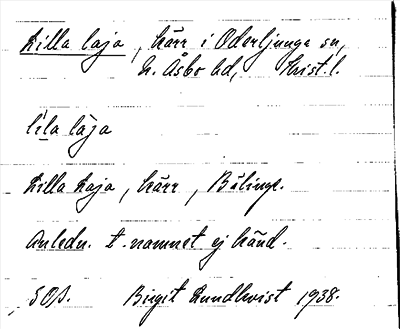 Lilla laja, kärr i Oderljunga sn,
N. Åsbo hd, Krist. l.
lila làja
Lilla Laja, kärr, Bälinge.
Anledn. t. namnet ej känd.
SOS. Birgit Lundkvist 1938.